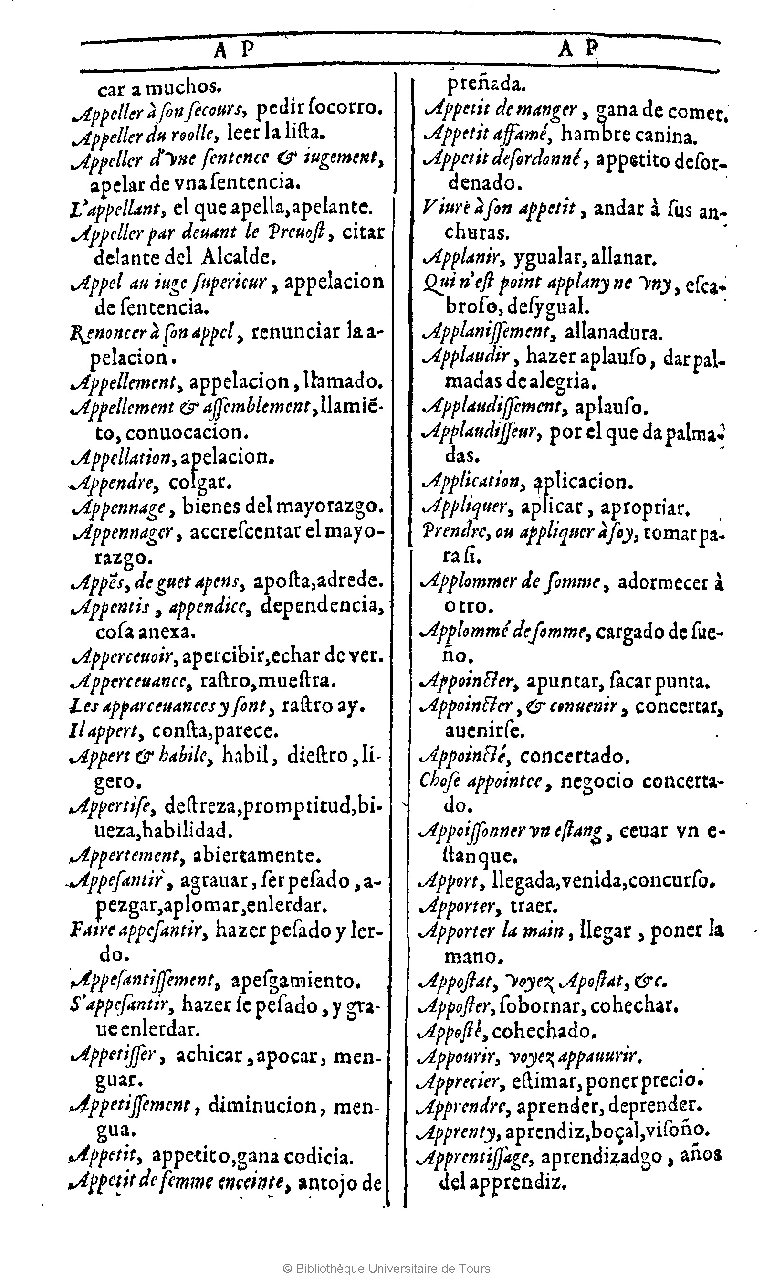 A P
car a muchos.
Appeller à son secours, pedir socorro.
Appeller du roolle, leer la lista.
Appeller d'vne sentence & iugement,
apelar de vna sentencia.
L'appellant, el que apella,apelante.
Appeller par deuant le Preuost, citar
delante del Alcalde.
Appel au iuge superieur, appelacion
de sentencia.
Renoncer à son appel, renunciar la a-
pelacion.
Appellement, appelacion, llamado.
Appellement & assemblement, llamiẽ-
to, conuocacion.
Appellation, apelacion.
Appendre, colgar.
Appennage, bienes del mayorazgo.
Appennager, accrescentar el mayo-
razgo.
Appẽs, de guet apens, aposta,adrede.
Appentis, appendice, dependencia,
cosa anexa.
Apperceuoir, apercibir,echar de ver.
Apperceuance, rastro,muestra.
Les apparceuances y sont, rastro ay.
Il appert, consta,parece.
Appert & habile, habil, diestro, lí-
gero.
Appertise, destreza,promptitud,bi-
ueza,habilidad.
Appertement, abiertamente.
Appesantir, agrauar, ser pesado, a-
pezgar,aplomar,enlerdar.
Faire appesantir, hazer pesado y ler-
do.
Appesantissement, apesgamiento.
S'appesantir, hazer se pesado, y gra-
ue enlerdar.
Appetisser, achicar, apocar, men-
guar.
Appetissement, diminucion, men-
gua.
Appetit, appetito,gana codicia.
Appetit de femme enceinte, antojo de
A P
preñada.
Appetit de manger, gana de comer.
Appetit affamé, hambre canina.
Appetit desordonné, appetito desor-
denado.
Viure à son appetit, andar à sus an-
churas.
Applanir, ygualar, allanar.
Qui n'est point applany ne vny, esca-
broso, desygual.
Applanissement, allanadura.
Applaudir, hazer aplauso, dar pal-
madas de alegria.
Applaudissement, aplauso.
Applaudisseur, por el que da palma-
das.
Application, aplicacion.
Appliquer, aplicar, apropriar.
Prendre, ou appliquer à soy, tomar pa-
ra si.
Applommer de somme, adormecer à
otro.
Applommé de somme, cargado de sue-
ño.
Appoincter, apuntar, sacar punta.
Appoincter, & conuenir, concertar,
auenirse.
Appoincté, concertado.
Chose appointee, negocio concerta-
do.
Appoissonner vn estang, ceuar vn e-
stanque.
Apport, llegada,venida,concurso.
Apporter, traer.
Apporter la main, llegar, poner la
mano.
Appostat, voyez Apostat, &c.
Apposter, sobornar, cohechar.
Apposté, cohechado.
Appourir, voyez appauurir.
Apprecier, estimar, poner precio.
Apprendre, aprender, deprender.
Apprenty, aprendiz,boçal,visoño.
Apprentissage, aprendizadgo, años
del apprendiz.
© Bibliothèque Universitaire de Tours